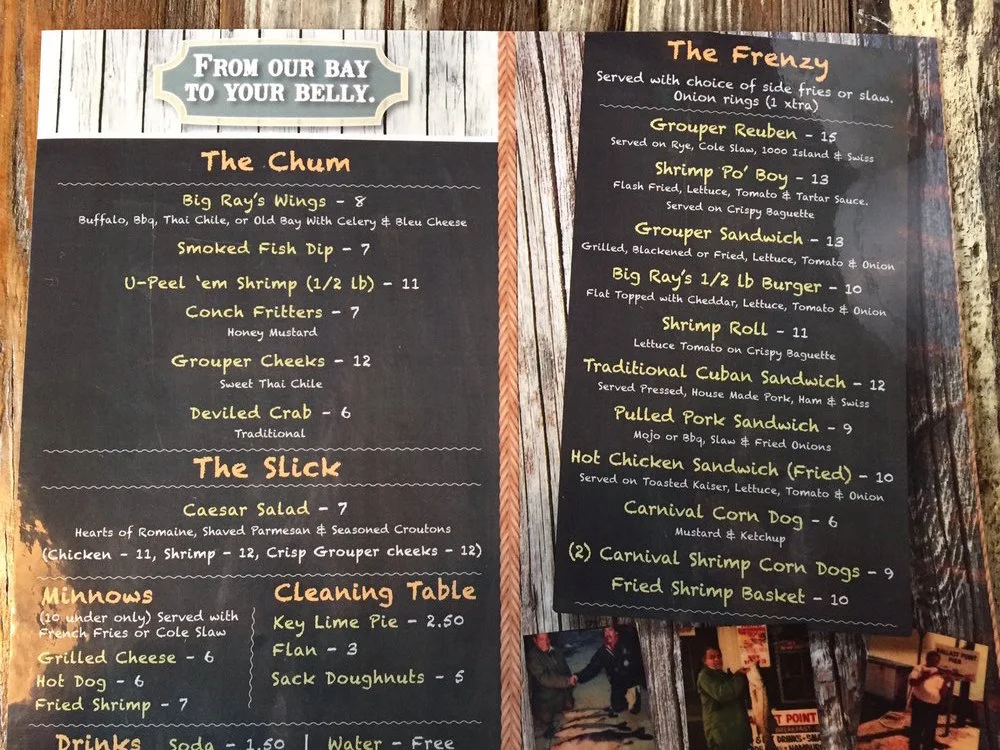 FROM OUR BAY
TO YOUR BELLY.
The Chum
Big Ray's Wings - 8
Buffalo, Bbq, Thai Chile, or Old Bay With Celery & Bleu Cheese
Smoked Fish Dip - 7
U-Peel 'em Shrimp (1/2 lb) - 11
Conch Fritters - 7
Honey Mustard
Grouper Cheeks - 12
Sweet Thai Chile
Deviled Crab - 6
Traditional
The Slick
Caesar Salad - 7
Hearts of Romaine, Shaved Parmesan & Seasoned Croutons
(Chicken - 11, Shrimp - 12, Crisp Grouper cheeks - 12)
Minnows
(10 under only) Served with
French Fries or Cole Slaw
Grilled Cheese - 6
Hot Dog - 6
Fried Shrimp - 7
Cleaning Table
Key Lime Pie - 2.50
Flan - 3
Sack Doughnuts - 5
Drinks Soda - 1.50 | Water - Free
The Frenzy
Served with choice of side fries or slaw.
Onion rings (1 xtra)
Grouper Reuben - 15
Served on Rye, Cole Slaw, 1000 Island & Swiss
Shrimp Po' Boy - 13
Flash Fried, Lettuce, Tomato & Tartar Sauce.
Served on Crispy Baguette
Grouper Sandwich - 13
Grilled, Blackened or Fried, Lettuce, Tomato & Onion
Big Ray's 1/2 lb Burger - 10
Flat Topped with Cheddar, Lettuce, Tomato & Onion
Shrimp Roll - 11
Lettuce Tomato on Crispy Baguette
Traditional Cuban Sandwich - 12
Served Pressed, House Made Pork, Ham & Swiss
Pulled Pork Sandwich - 9
Mojo or Bbq, Slaw & Fried Onions
Hot Chicken Sandwich (Fried) - 10
Served on Toasted Kaiser, Lettuce, Tomato & Onion
Carnival Corn Dog - 6
Mustard & Ketchup
(2) Carnival Shrimp Corn Dogs - 9
Fried Shrimp Basket - 10
T POINT
BALLAST POINT
PIER